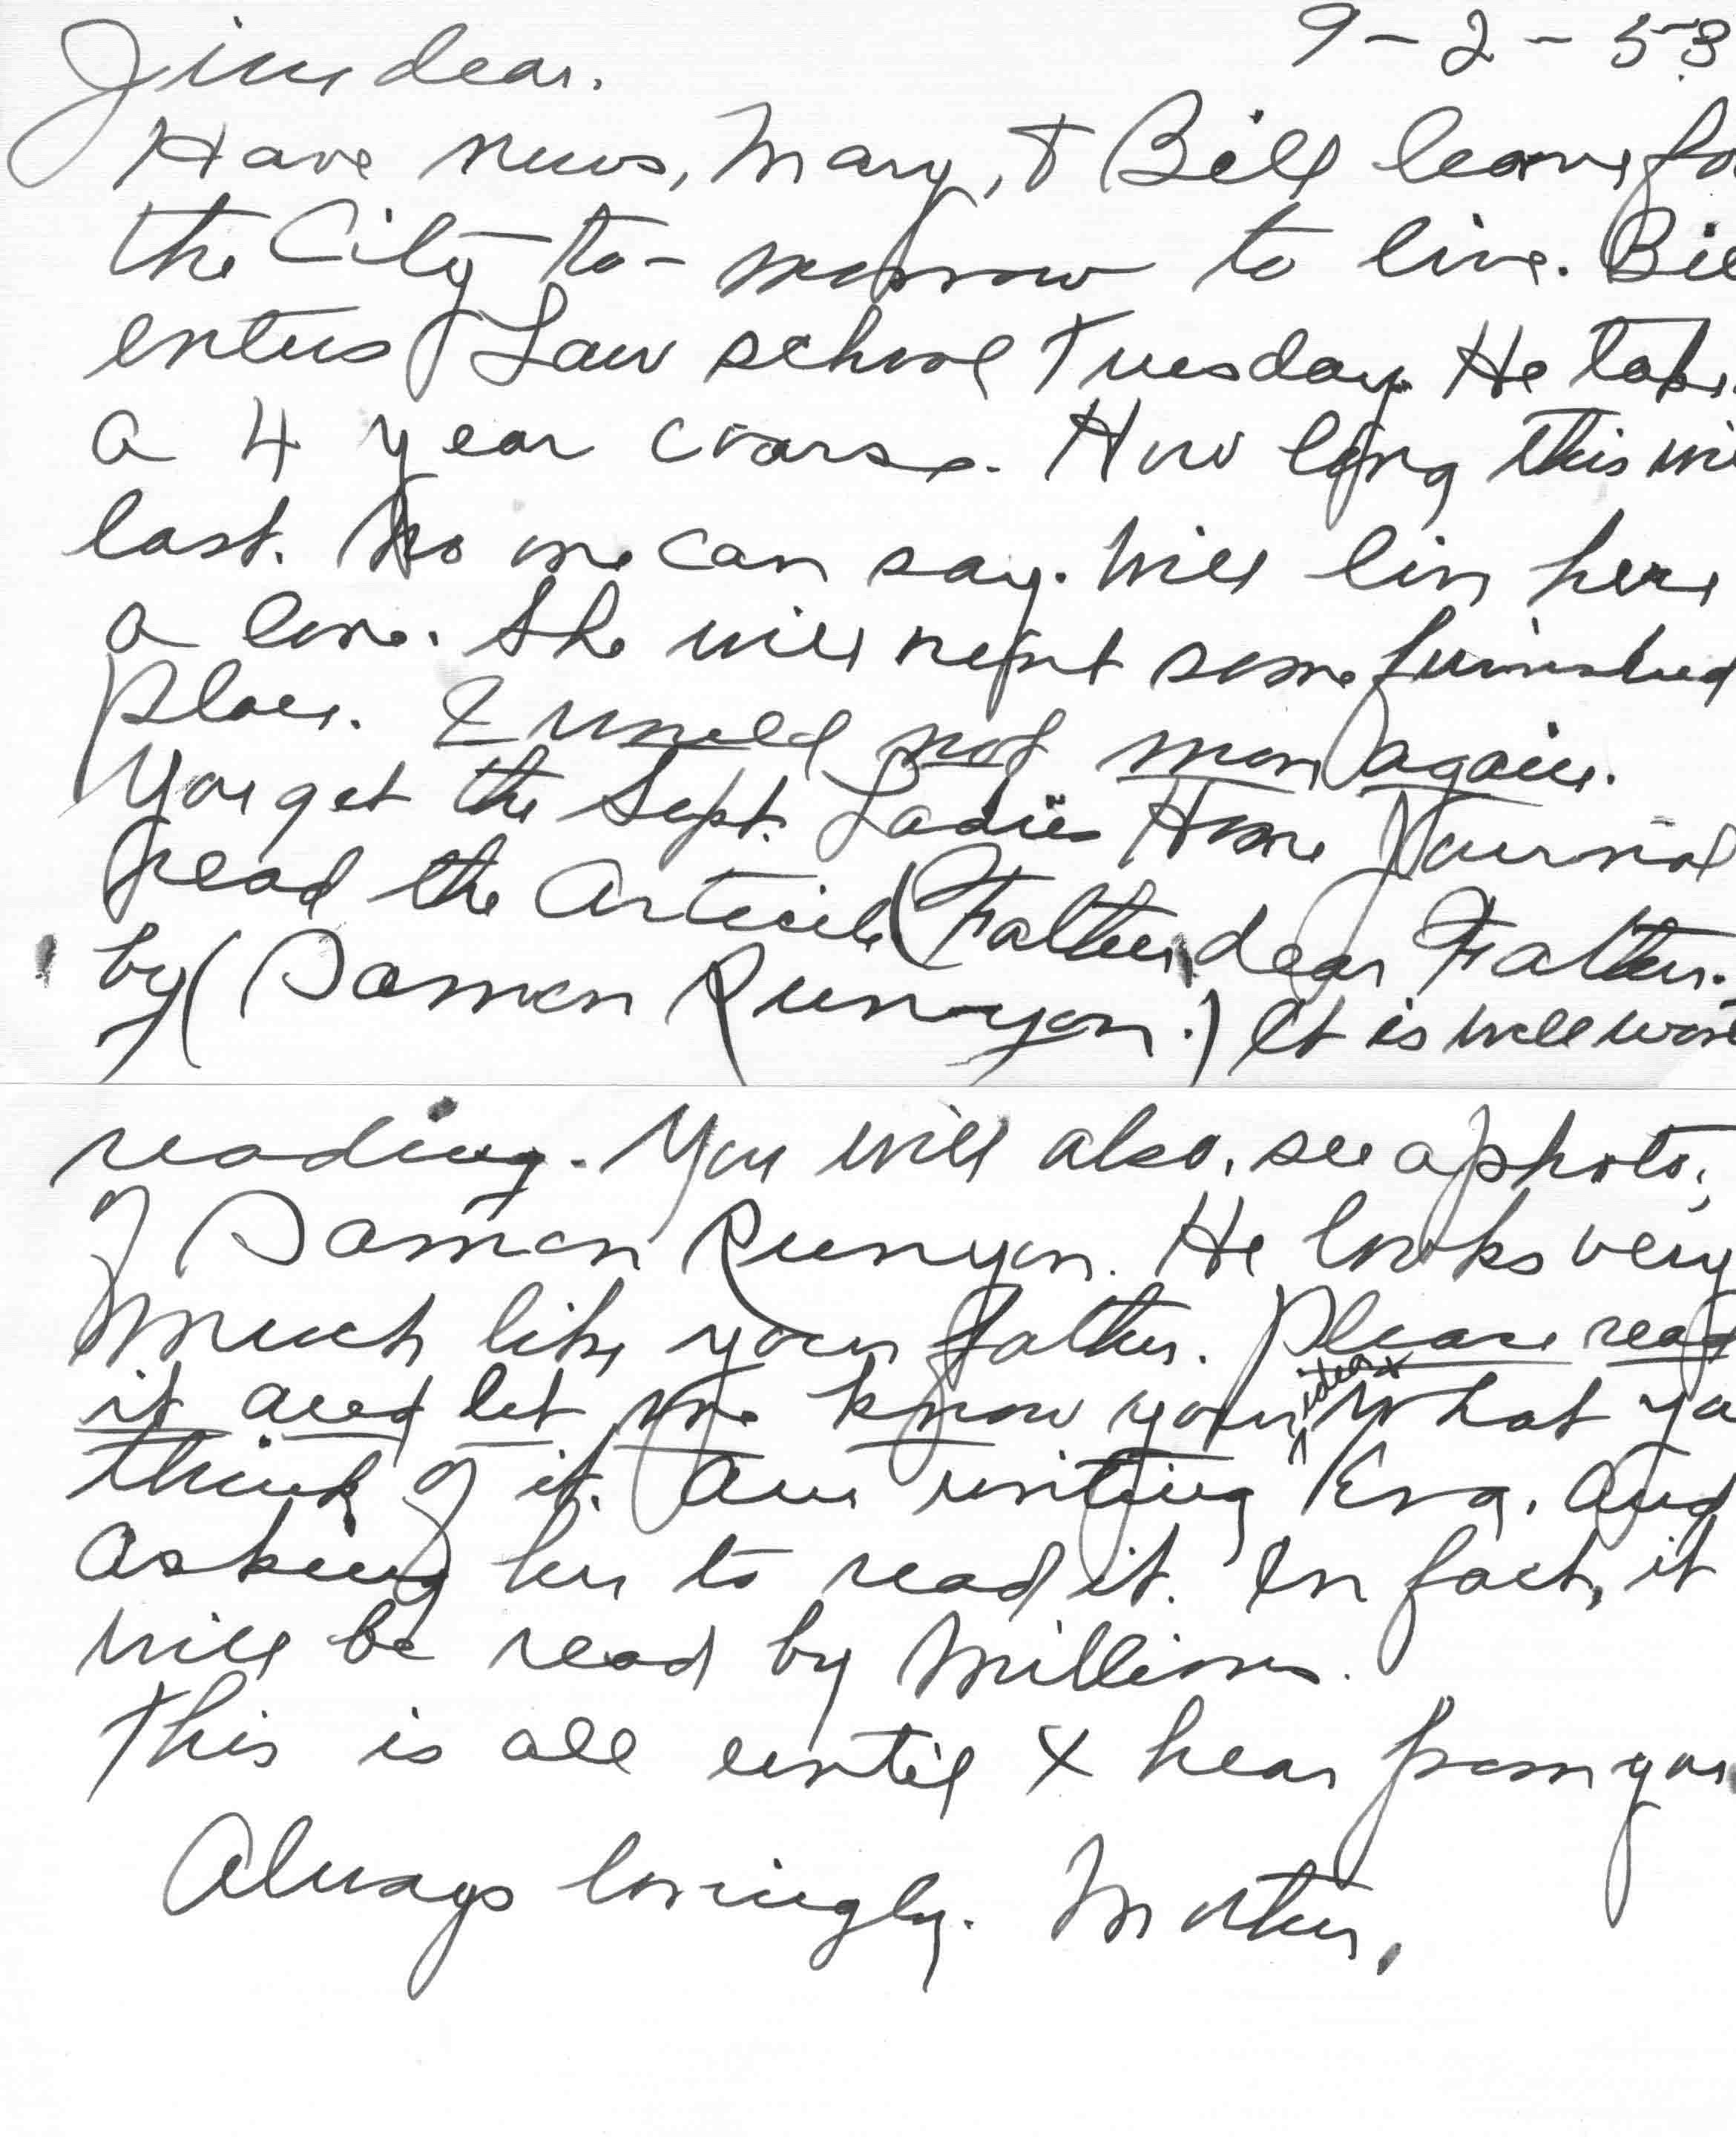 9-2-53
Jim dear.
Have news, Mary, & Bill leave fo
the City to-morrow to live. Bil
enters Law school Tuesday. He take
a 4 year coarse. How long this wi
last. No one can say. Will live here
a lone. She will rent some furnished
place. I would not move again.
You get the Sept. Ladies Home Journal
read the Article (Father, dear Father.
by (Damon Runyon.) It is well wor
reading. You will also, see a photo,
of Damon Runyon. He looks very
much like your father. Please read
it and let me know your idea & what yo
think of it. Am writing Eva. And
asking her to read it. In fact, it
will be read by millions.
This is all until I hear from you
Always lovingly. Mother.